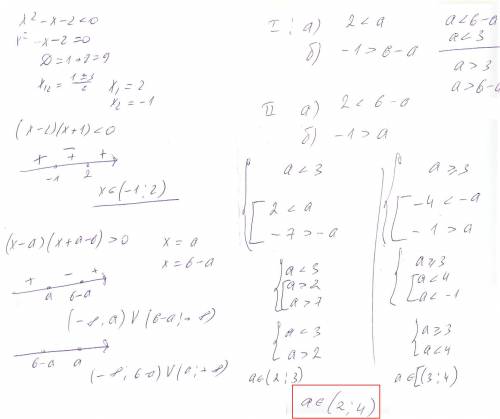 x² - x - 2 < 0
x² - x - 2 = 0
D = 1 + 8 = 9
x₁₂ = (1 ± 3)/2 x₁ = 2
x₂ = -1
(x-2)(x+1) < 0
+ - +
-1 2
x ∈ (-1; 2)
(x-a)(x+a-6) > 0 x = a
x = 6-a
+ - +
a 6-a
(-∞, a) ∨ (6-a; +∞)
6-a a
(-∞; 6-a) ∨ (a; +∞)
I: а) 2 < a
б) -1 > 6-a
a < 6-a
a < 3
a > 3
a > 6-a
II а) 2 < 6-a
б) -1 > a
a < 3
2 < a
-7 > -a
a < 3
a > 2
a > 7
a < 3
a > 2
a ∈ (2; 3)
a ≥ 3
-4 < -a
-1 > a
a ≥ 3
a < 4
a < -1
a ≥ 3
a < 4
a ∈ [(3; 4)
a ∈ (2; 4)